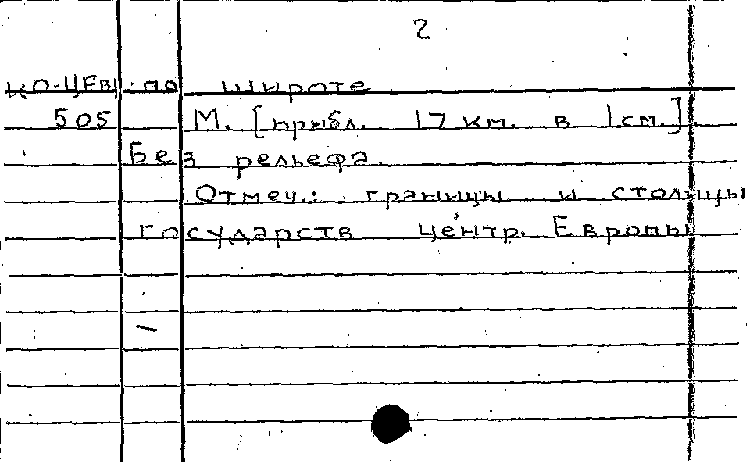 2
ко-цевы по широте
505 М. [прибл. 17 км. в 1 см.]
Без рельефа.
Отмеч.: границы и столицы
государств центр. Европы